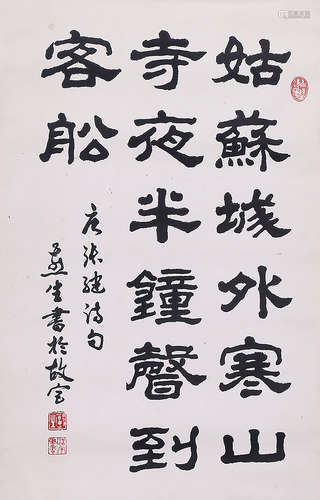 姑蘇城外寒山
寺夜半鐘聲到
客船
唐張繼詩句
燕生書於故宮